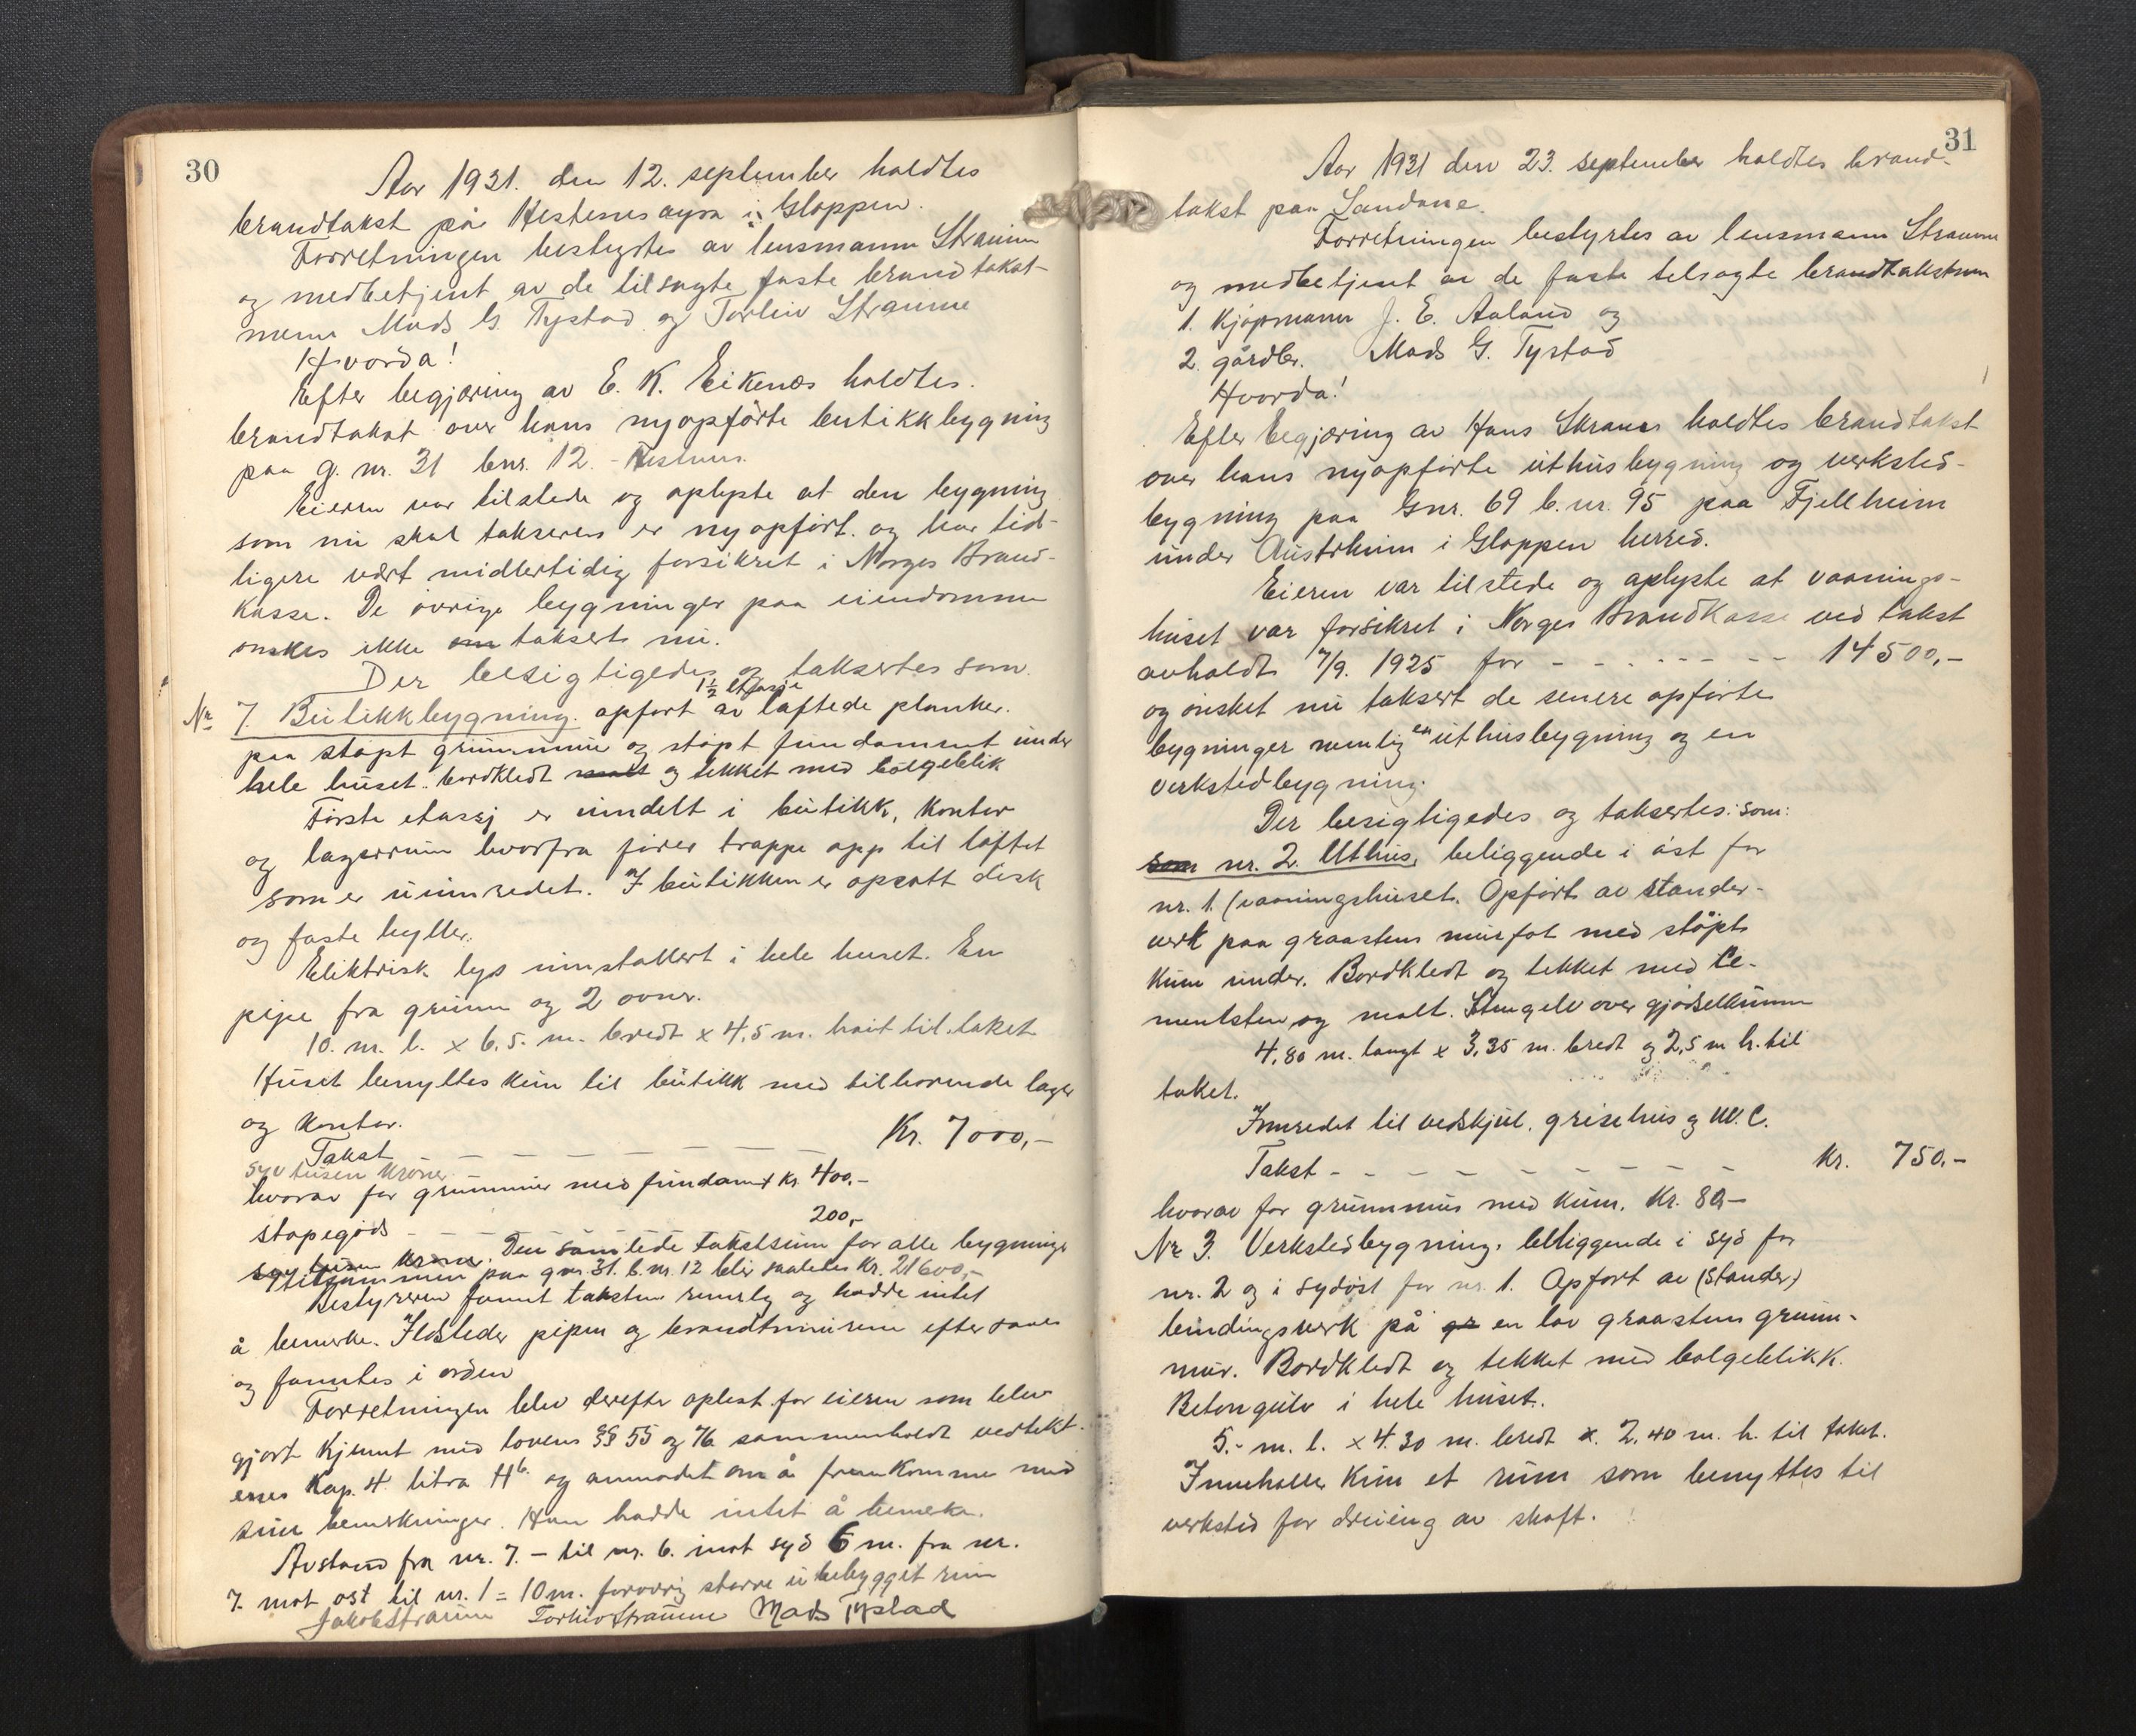 30
Aar 1931. den 12. september holdtes
brandtakst på Hestenesøyra i Gloppen.
Forretningen bestyrtes av lensmann Straume
og medbetjent av de tilsagte faste brandtakst-
menn Mads G. Tystad og Torleiv Straume
Hvorda!
Efter begjæring av E. K. Eikenæs holdtes.
brandtakst over hans nyopførte butikkbygning
paa g. nr. 31 bnr. 12.
Eieren var tilstede og oplyste at den bygning
som nu skal takseres er nyopført. og har tid-
ligere vært midlertidig forsikret i Norges Brand-
kasse. De øvrige bygninger paa eiendommen
ønskes ikke om taksert nu.
Der besigtigedes og taksertes som.
Nr 7. Butikkbygning. opført 1½ etasje av laftede planker.
paa støpt grunnmur og støpt fundament under
hele huset. bordkledt malt og tekket med bølgeblik
Første etasje er inndelt i butikk, kontor
og lagerrum hvorfra fører trappe opp til loftet
som er uinnredet. I butikken er opsatt disk
og faste hyller.
Elektrisk lys innstallert i hele huset. En
pipe fra grunn og 2 ovner.
10. m. l. x 6,5. m. bredt x 4,5 m. høit til taket
Huset benyttes kun til butikk med tilhørende lager
og kontor.
Takst — — — — — — Kr. 7000,-
syv tusen kroner. -
hvorav for grunnmur med fundament kr. 400.-
støpegods - - - 200,-
syv tusen kroner. Den samlede takstsum for alle bygninger
tilsammen paa gnr. 31. b. nr. 12 blir saaledes kr. 21600,-
Bestyreren fannt taksten rimelig og hadde intet
å bemerke. Ildsteder pipen og brandtmurene eftersaaes
og fanntes i orden
Forretningen blev derefter oplest for eieren som blev
gjort kjennt med lovens §§ 55 og 76 sammenholdt vedtekt-
enes Kap. 4 litra H6. og anmodet om å fremkomme med
sine bemerkninger. Han hadde intet å bemerke.
Avstand fra nr. 7. - til nr. 6. mot syd 6 m. fra nr.
7. mot ost til nr. 1 = 10 m. forøvrig større ubebygget rum
Jakob Straume Torleiv Straume Mads Tystad
31
Aar 1931 den 23. september holdtes brand-
takst paa Sandane.
Forretningen bestyrtes av lensmann Straume
og medbetjent av de faste tilsagte brandtakstmenn
1. Kjøpmann J. E. Aaland og
2. gårdbr. Mads G. Tystad
Hvorda!
Efter begjæring av Hans holdtes brandtakst
over hans nyopførte uthusbygning og verksted-
bygning paa Gnr. 69 b. nr. 95 paa Fjellheim
under Austrheim i Gloppen herred.
Eieren var tilstede og oplyste at vaanings-
huset var forsikret i Norges Brandkasse ved takst
avholdt 7/9. 1925 for - - - - - - - 14500,-
og ønsket nu taksert de senere opførte
bygninger nemlig en uthusbygning og en
verkstedbygning.
Der besigtigedes og taksertes: som:
som nr. 2. Uthus, beliggende i øst for
nr. 1. (vaaningshuset. Opført av stander-
verk paa graastens murfot med støpt
kum under. Bordkledt og tekket med ce-
mentsten og malt. over gjødselkummen
4,80 m. langt x 3,35 m. bredt og 2,5 m h. til
taket.
Innredet til vedskjul, grisehus og W. C.
Takst - - - - - - - - - Kr. 750.-
hvorav for grunnmur med kum. Kr. 80,-
Nr 3. Verkstedbygning, beliggende i syd for
nr. 2 og i sydøst for nr. 1. Opført av (stander)
bindingsverk på gr en lav graastens grunn-
mur. Bordkledt og tekket med bølgeblikk.
Betongulv i hele huset.
5.- m. l. x 4.30 m. bredt x. 2,40 m. h. til taket.
Inneholler kun et rum som benyttes til
verksted for dreieing av skaft.